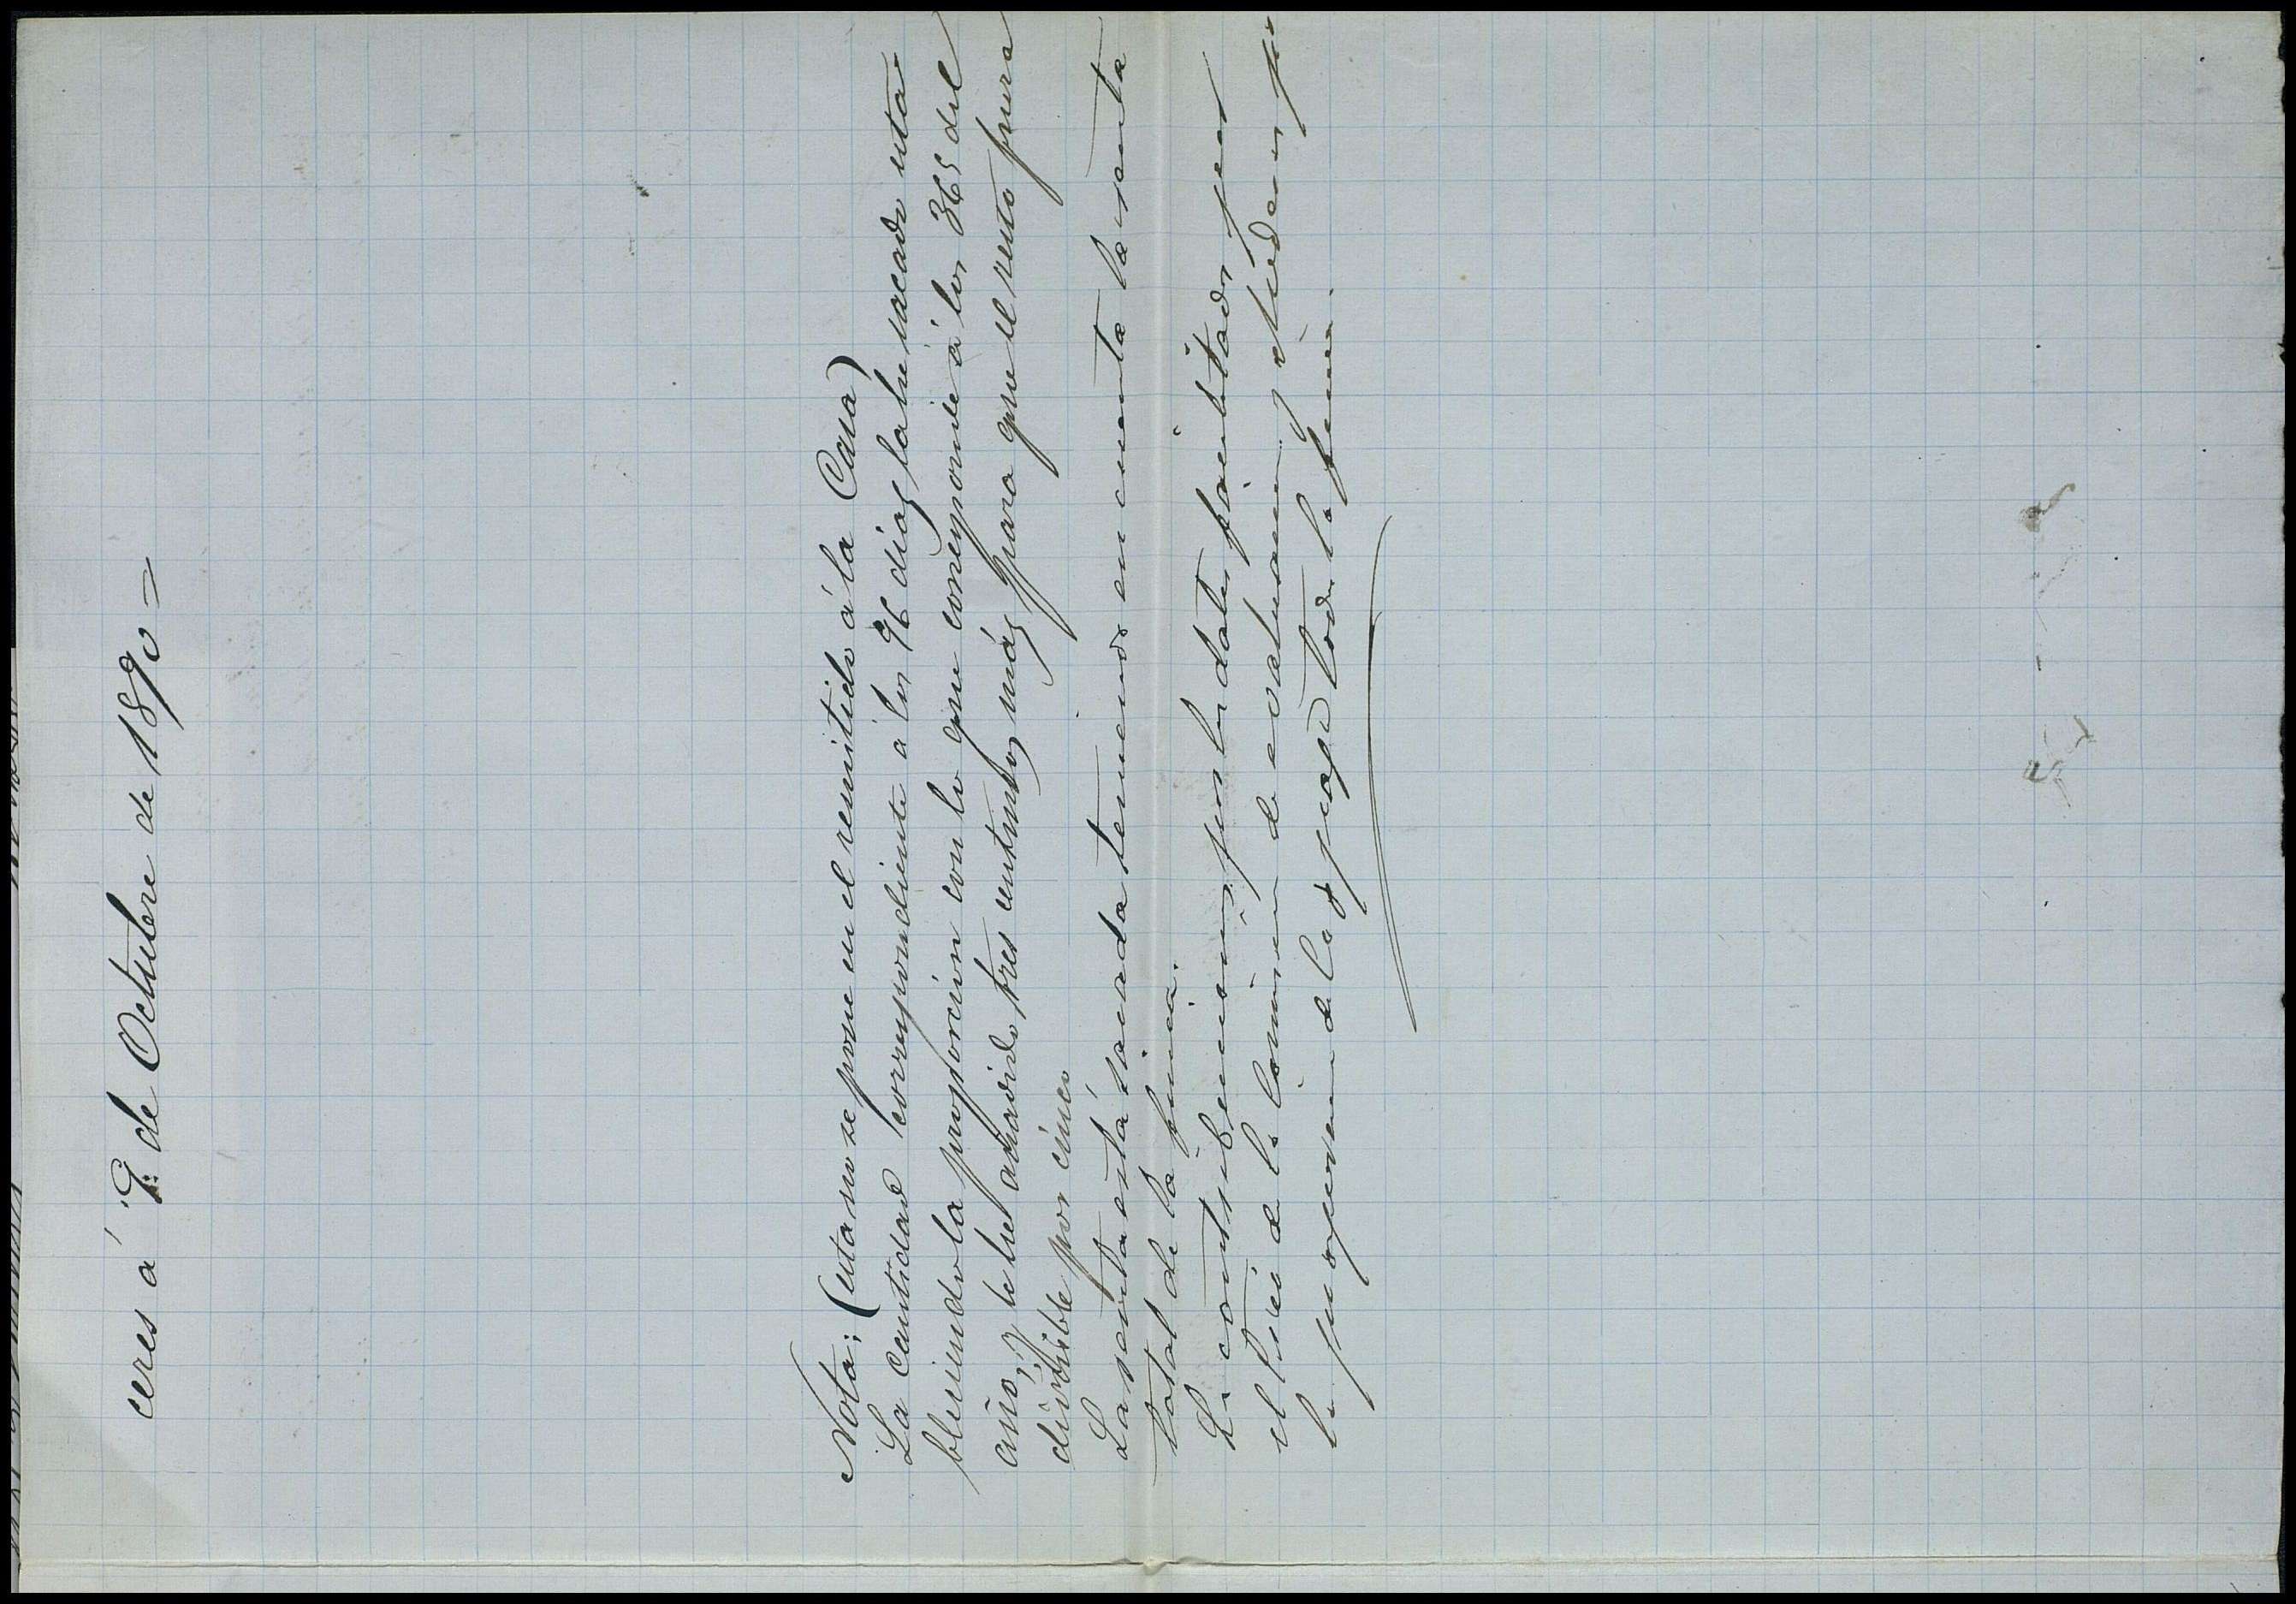 ceres á 9 de Octubre de 1890 =
Nota: (esta no se pone en el remitido á la Casa)
La cantidad correspondiente á los 96 días la he sacado esta-
bleciendo la proporción con lo que corresponde á los 365 del
año; y le he añadido tres centimos más para que el resto fuera
divisible por cinco
La renta está sacada teniendo en cuenta la renta
total de la finca.
La contribución por los datos facilitados por
el Srio de la Comisión de evaluación
la que paga toda la finca.